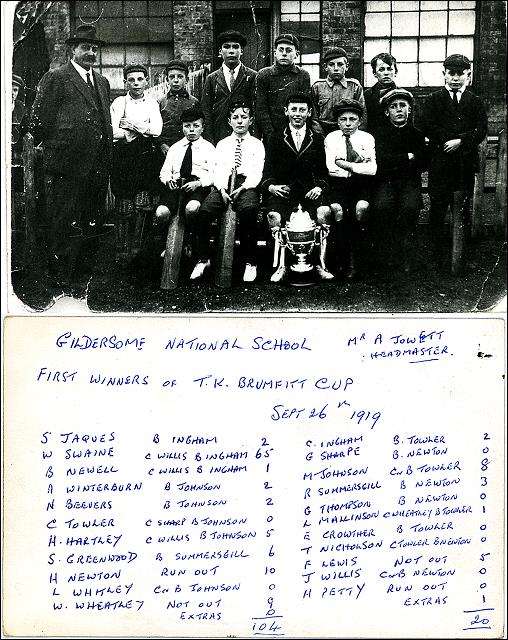 GILDERSOME NATIONAL SCHOOL
MR A JOWETT
HEADMASTER.
FIRST WINNERS OF T.K. BRUMFITT CUP
SEPT 26TH 1919
S JAQUES B INGHAM 2
W SWAINE C WILLIS B INGHAM 65
B NEWELL C WILLIS B INGHAM 1
A WINTERBURN B JOHNSON 2
N BEEVERS B JOHNSON 2
C TOWLER C SHARP B JOHNSON 0
H. HARTLEY C WILLIS B JOHNSON 5
S. GREENWOOD B SUMMERSGILL 6
H NEWTON RUN OUT 10
L WHITLEY C & B JOHNSON 0
W. WHEATLEY NOT OUT 9
EXTRAS 0
104
C. INGHAM B. TOWLER 2
G SHARPE B. NEWTON 0
M JOHNSON C & B TOWLER 8
R SUMMERSGILL B NEWTON 3
G THOMPSON B NEWTON 0
L MALLINSON C WHEATLEY B TOWLER 1
E CROWTHER B TOWLER 0
T NICHOLSON C TOWLER B NEWTON 0
F LEWIS NOT OUT 5
J WILLIS C & B NEWTON 0
H PETTY RUN OUT 0
EXTRAS 1
20